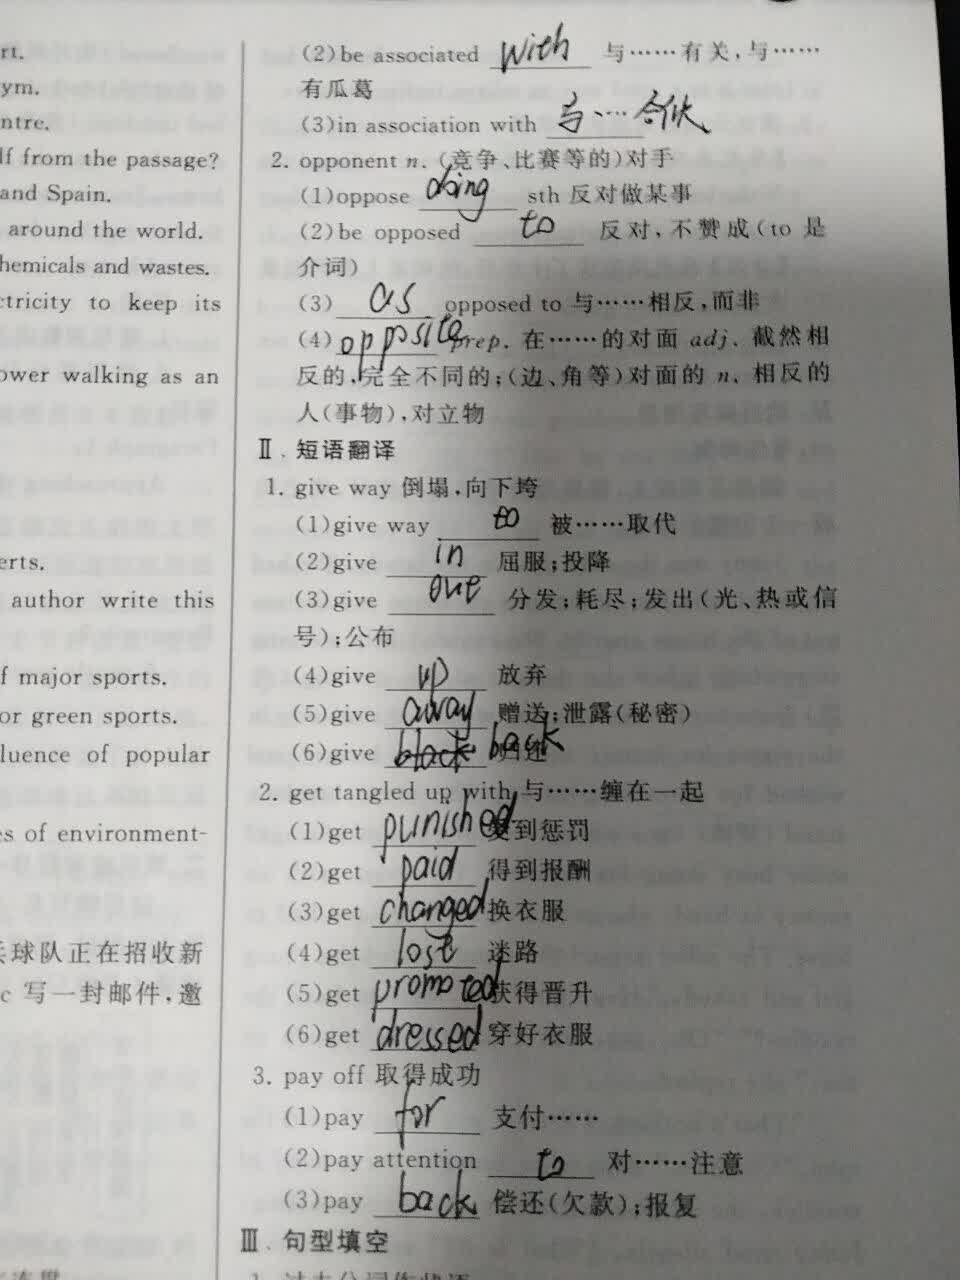 rt.
ym.
ntre.
lf from the passage?
and Spain.
around the world.
hemicals and wastes.
ctricity to keep its
ower walking as an
erts.
author write this
f major sports.
or green sports.
luence of popular
es of environment-
兵球队正在招收新
c 写一封邮件,邀
(2)be associated with 与……有关,与……
有瓜葛
(3)in association with 与……合伙
2. opponent n. (竞争、比赛等的)对手
(1)oppose doing sth 反对做某事
(2)be opposed to 反对,不赞成(to 是
介词)
(3) as opposed to 与……相反,而非
(4) opposite prep. 在……的对面 adj. 截然相
反的,完全不同的;(边、角等)对面的 n. 相反的
人(事物),对立物
Ⅱ. 短语翻译
1. give way 倒塌,向下垮
(1)give way to 被……取代
(2)give in 屈服;投降
(3)give out 分发;耗尽;发出(光、热或信
号);公布
(4)give up 放弃
(5)give away 赠送;泄露(秘密)
(6)give back 归还
2. get tangled up with 与……缠在一起
(1)get punished 受到惩罚
(2)get paid 得到报酬
(3)get changed 换衣服
(4)get lost 迷路
(5)get promoted 获得晋升
(6)get dressed 穿好衣服
3. pay off 取得成功
(1)pay for 支付……
(2)pay attention to 对……注意
(3)pay back 偿还(欠款);报复
Ⅲ. 句型填空